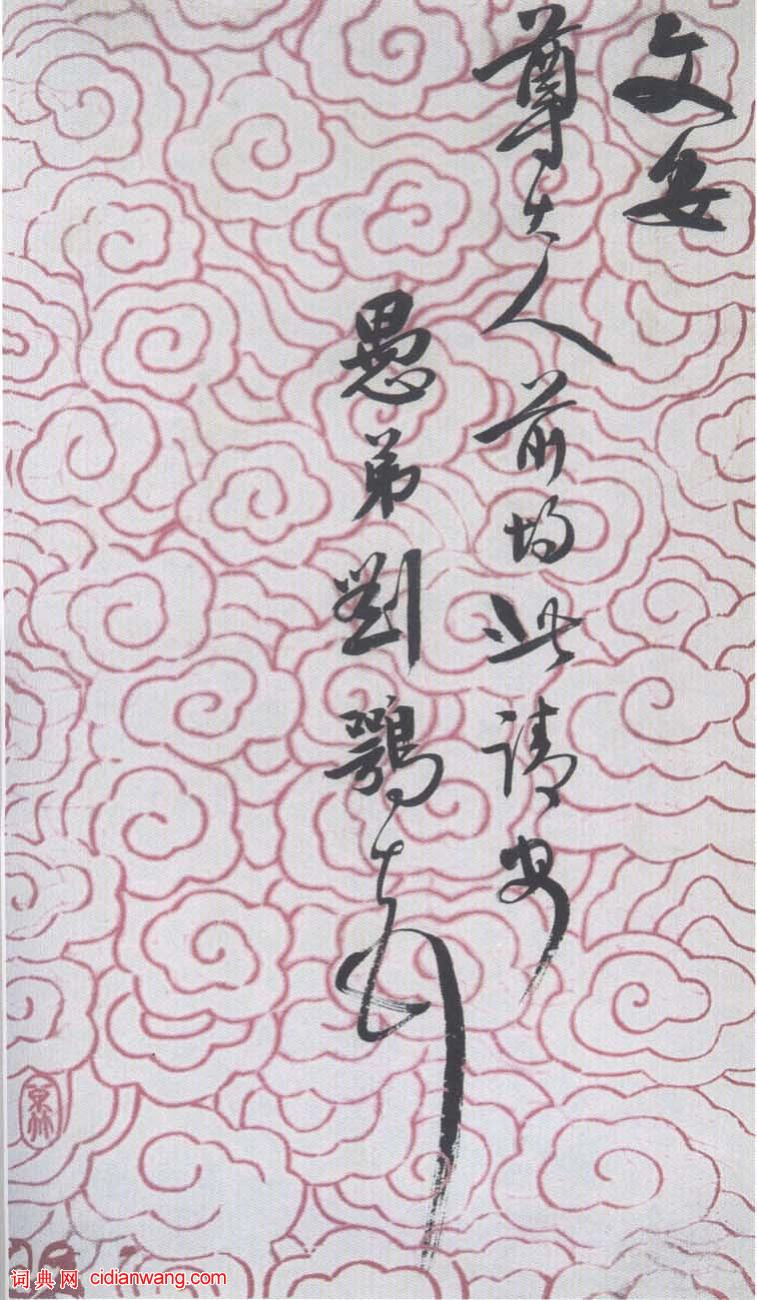 文安
尊大人前均此請安
愚弟劉鶚
词典网 cidianwang.com